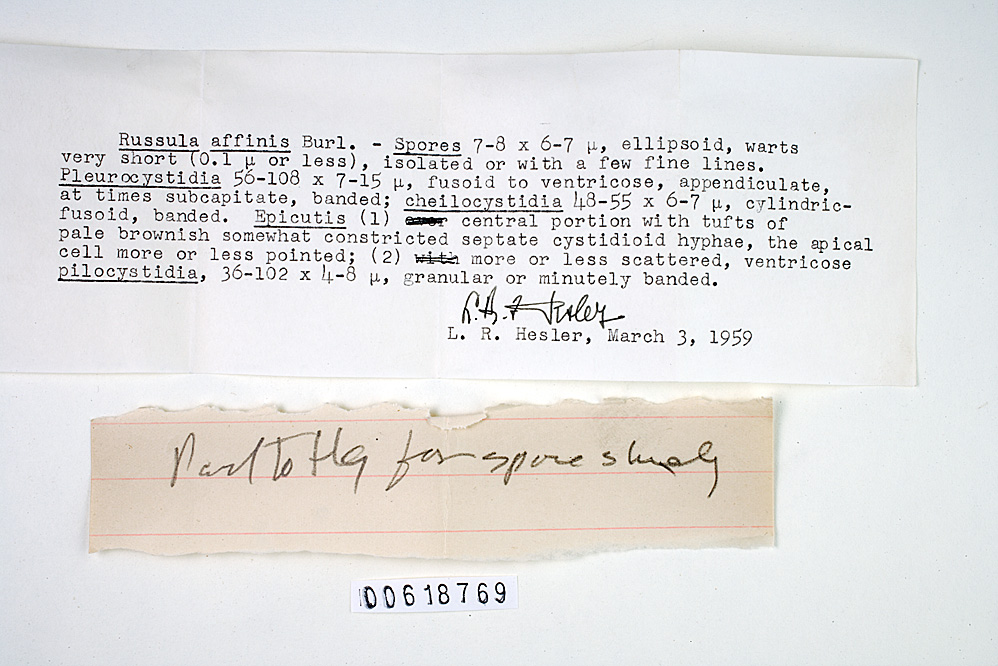 Russula affinis Burl. - Spores 7-8 x 6-7 μ, ellipsoid, warts
very short (0.1 μ or less), isolated or with a few fine lines.
Pleurocystidia 56-108 x 7-15 μ, fusoid to ventricose, appendiculate,
at times subcapitate, banded; cheilocystidia 48-55 x 6-7 μ, cylindric-
fusoid, banded. Epicutis (1) central portion with tufts of
pale brownish somewhat constricted septate cystidioid hyphae, the apical
cell more or less pointed; (2) with more or less scattered, ventricose
pilocystidia, 36-102 x 4-8 μ, granular or minutely banded.
L. R. Hesler
L. R. Hesler, March 3, 1959
Part to for spore study
00618769